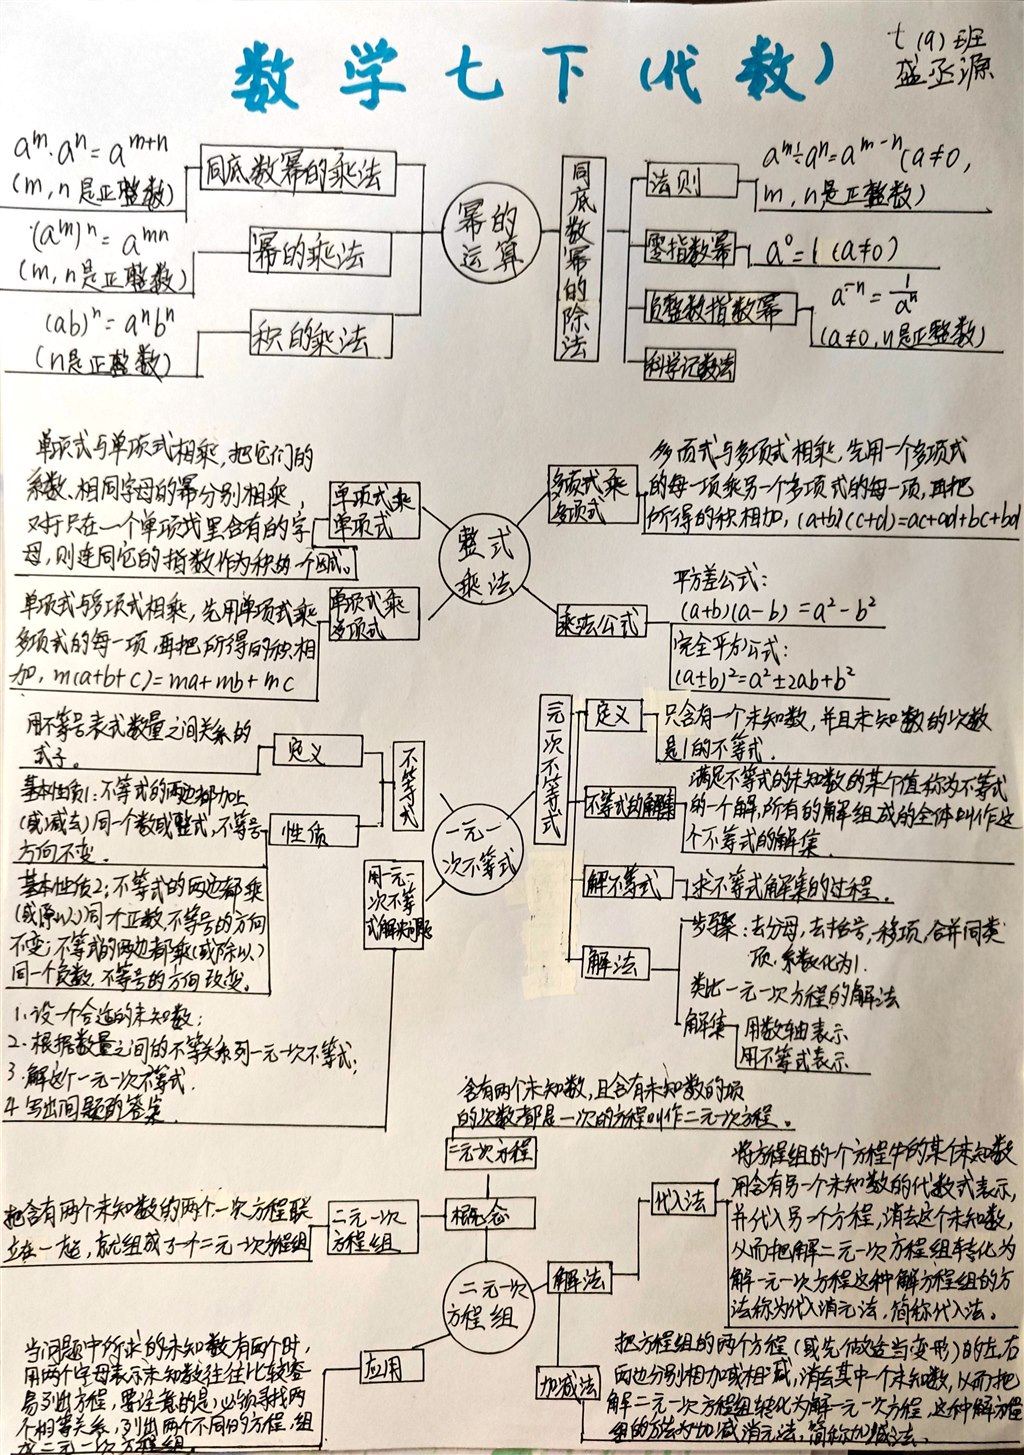 数学七下(代数)
七(9)班
盛丞源
aᵐ·aⁿ=aᵐ⁺ⁿ
(m,n是正整数)
同底数幂的乘法
(aᵐ)ⁿ=aᵐⁿ
(m,n是正整数)
幂的乘法
(ab)ⁿ=aⁿbⁿ
(n是正整数)
积的乘法
幂的
运算
同底数幂的除法
法则
aᵐ÷aⁿ=aᵐ⁻ⁿ(a≠0,
m,n是正整数)
零指数幂
a⁰=1(a≠0)
负整数指数幂
a⁻ⁿ=1/aⁿ
(a≠0,n是正整数)
科学记数法
单项式与单项式相乘,把它们的
系数、相同字母的幂分别相乘,
对于只在一个单项式里含有的字
母,则连同它的指数作为积的一个因式。
单项式乘
单项式
单项式与多项式相乘,先用单项式乘
多项式的每一项,再把所得的积相
加,m(a+b+c)=ma+mb+mc
单项式乘
多项式
整式
乘法
多项式乘
多项式
多项式与多项式相乘,先用一个多项式
的每一项乘另一个多项式的每一项,再把
所得的积相加,(a+b)(c+d)=ac+ad+bc+bd
乘法公式
平方差公式:
(a+b)(a-b)=a²-b²
完全平方公式:
(a±b)²=a²±2ab+b²
用不等号表式数量之间关系的
式子。
定义
基本性质1:不等式的两边都加上
(或减去)同一个数或整式,不等号
方向不变.
性质
基本性质2:不等式的两边都乘
(或除以)同一个正数,不等号的方向
不变;不等式的两边都乘(或除以)
同一个负数,不等号的方向改变。
不等式
用一元一
次不等
式解决问题
1.设一个合适的未知数;
2.根据数量之间的不等关系列一元一次不等式;
3.解这个一元一次不等式.
4.写出问题的答案.
一元一
次不等式
元一次不等式
定义
只含有一个未知数,并且未知数的次数
是1的不等式.
不等式的解集
满足不等式的未知数的某个值称为不等式
的一个解,所有的解组成的全体叫作这
个不等式的解集.
解不等式
求不等式解集的过程.
解法
步骤:去分母,去括号,移项,合并同类
项,系数化为1.
类比一元一次方程的解法
解集
用数轴表示
用不等式表示
含有两个未知数,且含有未知数的项
的次数都是一次的方程叫作二元一次方程。
二元次方程
概念
二元一次
方程组
把含有两个未知数的两个一次方程联
立在一起,就组成了一个二元一次方程组
二元一次
方程组
解法
代入法
将方程组的一个方程中的某个未知数
用含有另一个未知数的代数式表示,
并代入另一个方程,消去这个未知数,
从而把解二元一次方程组转化为
解一元一次方程这种解方程组的方
法称为代入消元法,简称代入法。
加减法
把方程组的两个方程(或先做适当变形)的左、右
两边分别相加或相减,消去其中一个未知数,从而把
解二元一次方程组转化为解一元一次方程,这种解方程
组的方法为加减消元法,简称加减法.
应用
当问题中所求的未知数有两个时,
用两个字母表示未知数往往比较容
易列出方程,要注意的是,必须寻找两
个相等关系,列出两个不同的方程,组
成二元一次方程组.